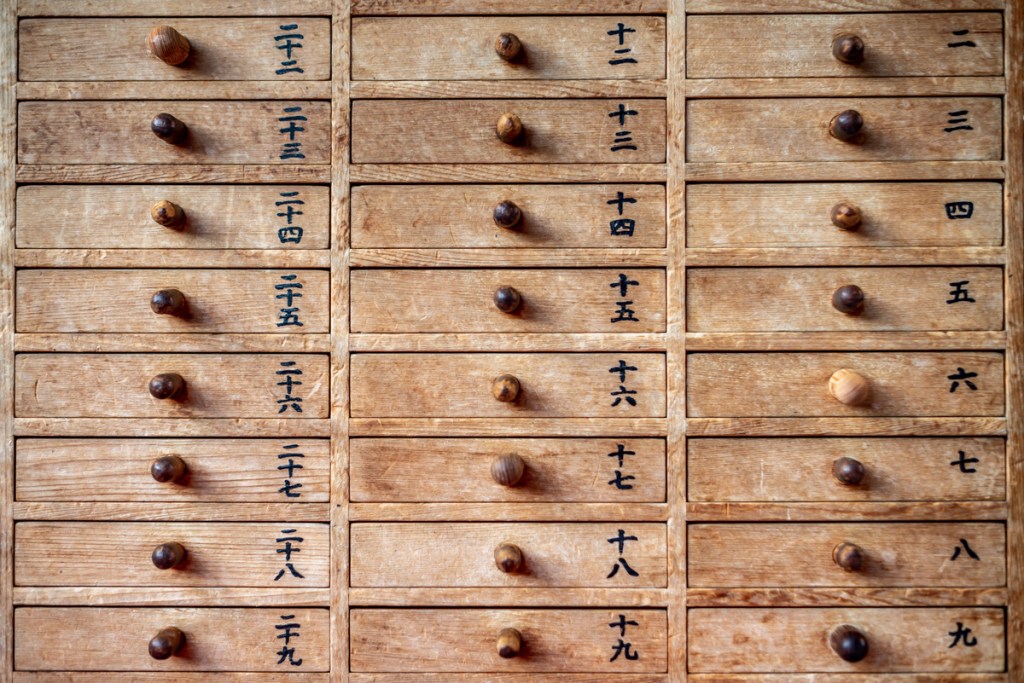 二
三
四
五
六
七
八
九
十二
十三
十四
十五
十六
十七
十八
十九
二十二
二十三
二十四
二十五
二十六
二十七
二十八
二十九